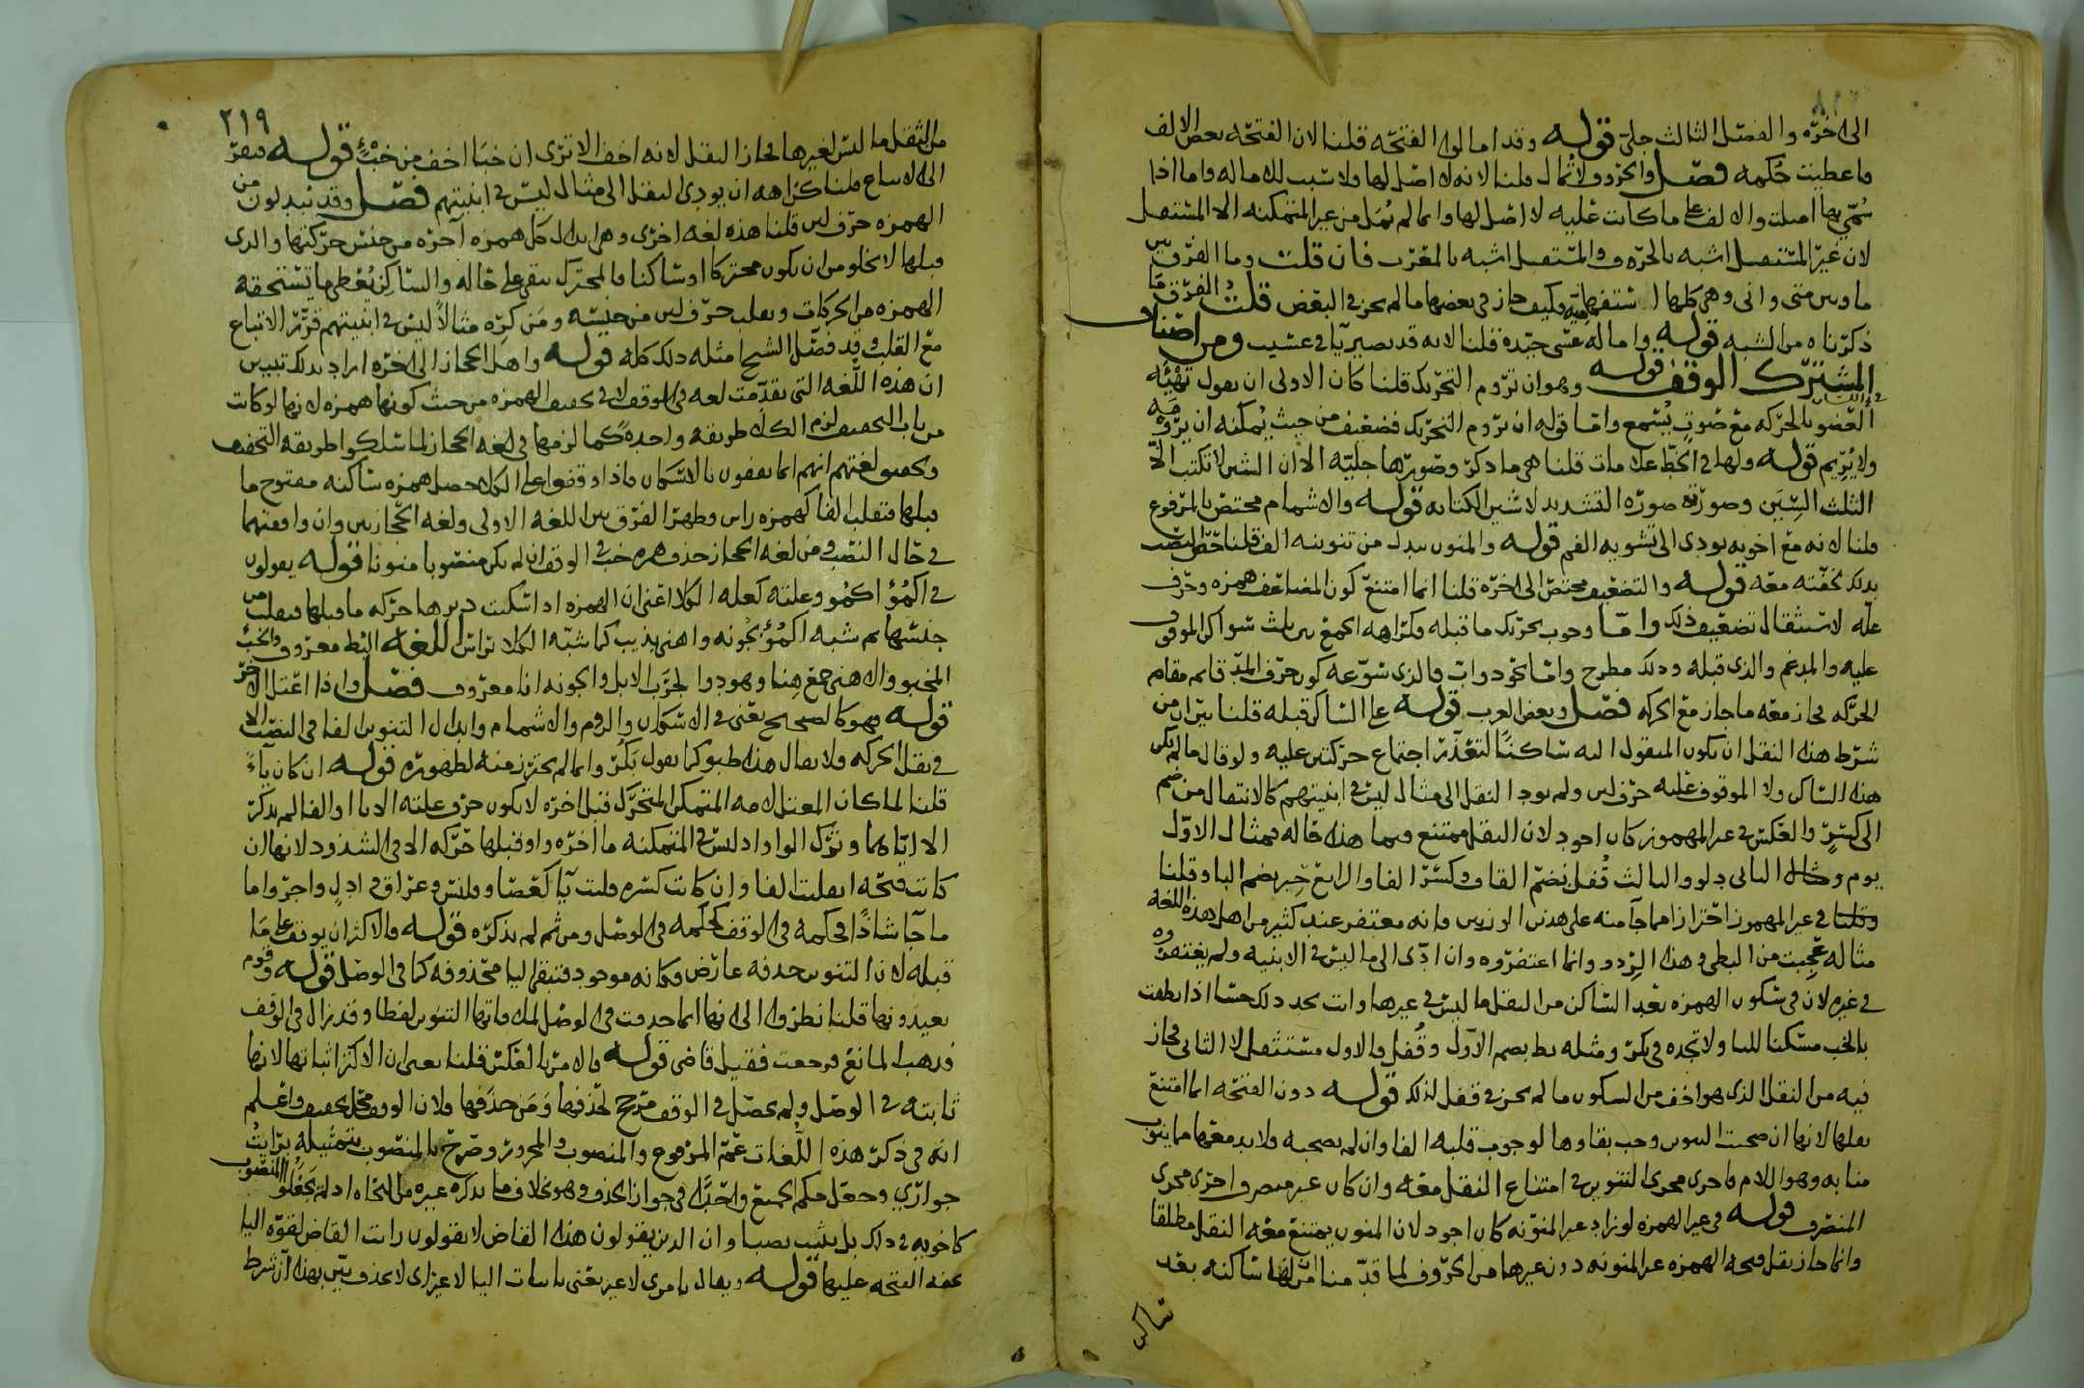 الى اخره والفصل الثالث جلي قوله وقد امالوا الفتحة قلنا لان الفتحة بعض الالف
فاعطيت حكمه فصل والحروف لا تمال قلنا لانه لا اصل لها ولا سبب لذلك اماله واما اذا
سمي بها اميلت والالف على ما كانت عليه لا اصل لها وانما لم تمل من غير المتمكنة الا المستقل
لان غير المستقل اشبه بالحرف والمستقل اشبه بالمعرب فان قلت وما الفرق بين
ما وبين متى وانى وهي كلها استفهامية وكيف جاز في بعضها ما لم يجز في البعض قلت الفرق ما
ذكرناه من الشبه قوله واماله عسى جيدة قلنا لانه قد تصير يا في عسيت ومن اصناف
المشترك الوقف قوله وهو ان تروم التحريك قلنا كان الاولى ان يقول تهيئة
العضو بالحركة مع صوت يسمع واما قوله ان تروم التحريك فضعيف من حيث يمكنه ان يروم
ولا يريم قوله ولها في الخط علامات قلنا هي ما ذكر وصورها جلية الا ان الشين لا تكتب الا
الثلث الشين وصورة صورة التشديد لا شين الكتابة قوله والاشمام مختص بالمرفوع
قلنا لانه مع اخويه يودي الى تشويه الفم قوله والمنون يبدل من تنوينه الف قلنا خص النصب
بذلك لخفته معه قوله والتضعيف مختص الى اخره قلنا انما امتنع كون المضاعف همزة وحرف
علة لاستثقال تضعيف ذلك واما وجوب تحريك ما قبله فكراهة الجمع بين ثلث سواكن الموقوف
عليه والمدغم والذي قبله وذلك مطرح واما نحو دواب فالذي سوغه كون حرف المد قائم مقام
الحركة فجاز معه ما جاز مع الحركة فصل وبعض العرب قوله على الساكن قبله قلنا بين ان من
شرط هذا النقل ان يكون المنقول اليه ساكنا لتعذر اجتماع حركتين عليه ولو قال ما لم يكن
هذا الساكن ولا الموقوف عليه حرف لين ولم يود النقل الى مثال ليس في ابنيتهم كالانتقال من ضم
الى كسر والعكس في غير المهموز كان اجود لان النقل ممتنع فيما هذا حاله فمثال الاول
يوم ومثال الثاني دلو والثالث قفل بضم القاف وكسر الفا والرابع حبر بضم البا وقلنا
وقلنا في غير المهموز احترازا مما جا منه على هذين الوزنين فانه مغتفر عند كثير من اهل هذه اللغة
مثاله عجبت من البطي وهذا الردو وانما اغتفروه وان ادى الى ما ليس في الابنية ولم يغتفروه
في غيره لان في سكون الهمزة بعد الساكن من الثقل ما ليس في غيرها وانت تجد ذلك حسا اذا نطقت
بالخب مسكنا للبا ولا تجده في بكر ومثله بط بضم الاول وقفل فالاول مستثقل لا الثاني فجاز
فيه من النقل الذي هو اخف من السكون ما لم يجز في قفل لذلك قوله دون الفتحة انما امتنع
نقلها لانها ان صحبت التنوين وجب بقاوها لوجوب قلبه الفا وان لم تصحبه فلا بد معها مما ينوب
منابه وهو اللام فاجري مجرى التنوين في امتناع النقل معه وان كان غير منصرف اجري مجرى
المنصرف قوله في غير الهمزة لو زاد غير المنونة كان اجود لان المنون يمتنع معه النقل مطلقا
وانما جاز نقل فتحة الهمزة غير المنونة دون غيرها من الحروف لما قدمنا من انها ساكنة بعد
ساكن
٢١٩
من الثقل ما ليس لغيرها فجاز النقل لانه اخف الا ترى ان خبا اخف من خبء قوله فيفر
الى الاتباع قلنا كراهة ان يودي النقل الى مثال ليس في ابنيتهم فصل وقد تبدلون من
الهمزة حرف لين قلنا هذه لغة اخرى وهي ابدال كل همزة اخرة من جنس حركتها والذي
قبلها لا يخلو من ان يكون متحركا او ساكنا فالمتحرك يبقى على حاله والساكن يعطى ما تستحقه
الهمزة من الحركات وتقلب حرف لين من جنسه ومن كره مثالا ليس في ابنيتهم قرر الاتباع
مع القلب وقد فصل الشيخ امثلة ذلك كله قوله واهل الحجاز الى اخره اراد بذلك تبيين
ان هذه اللغة التي تقدمت لغة في الوقف لا في تخفيف الهمزة من حيث كونها همزة لانها لو كانت
من باب التخفيف لزم الكل طريقة واحدة كما لزمها في لغة الحجاز لما سلكوا طريقة التخفيف
وتحقيق لغتهم انهم انما يقفون بالاسكان فاذا وقفوا على الكلا حصل همزة ساكنة مفتوح ما
قبلها فتقلب الفا كهمزة راس وظهر الفرق بين اللغة الاولى ولغة الحجازيين وان وافقتهما
في حال النصب ومن لغة الحجاز حذف همزة خب في الوقف ان لم يكن منصوبا منونا قوله يقولون
في اكمؤ اكمو وعلته كعلة الكلا اعني ان الهمزة اذا سكنت دبرها حركة ما قبلها فقلبت من
جنسها ثم شبه اكمؤ بجونة واهنى بذيب كما شبه الكلا براس اللغة البط معروف والخب
المخبو والاهنى جمع هنا وهو دوا لجرب الابل والجونة انا معروف فصل واذا اعتل الاخر
قوله فهو كالصحيح يعني في الاسكان والروم والاشمام وابدال التنوين الفا في النصب الا
في نقل الحركة ولا يقال هذا ظبو كما يقول بكر وانما لم يحترز منه لظهوره قوله ان كان ياء
قلنا لما كان المعتل لامه المتمكن المتحرك قبل اخره لا يكون حرف علته الا يا او الفا لم يذكر
الا اياهما وترك الواو اذ ليس في المتمكنة ما اخره واو قبلها حركة الا في الشذوذ لانها ان
كانت فتحة انقلبت الفا وان كانت كسرة قلبت يا كعصا وقلنس وعراق في ادل واجر واما
ما جا شاذا فحكمه في الوقف كحكمه في الوصل ومن ثم لم يذكره قوله فالاكثر ان يوقف على ما
قبله لان التنوين حذفه عارض فكانه موجود فتبقى اليا محذوفة كما في الوصل قوله وقوم
يعيدونها قلنا نظروا الى انها انما حذفت في الوصل لملاقاتها التنوين لفظا وقد زال في الوقف
فذهب المانع فرجعت فقيل قاضي قوله فالامر بالعكس قلنا يعني ان الاكثر اثباتها لانها
ثابتة في الوصل ولم يحصل في الوقف مرجح لحذفها ومن حذفها فلان الوقف محل تخفيف واعلم
انه في ذكر هذه اللغات عم المرفوع والمنصوب والمجرور وصرح بالمنصوب بتمثيله برايت
جواري وجعل حكم الجميع واحدا في جواز الحذف وهو بخلاف ما يذكره غيره من النحاة اذ لم يجعلوا المنصوب
كاخويه في ذلك بل يثبت نصبا وان الذين يقولون هذا القاض لا يقولون رايت القاض لقوة اليا
بخفة الفتحة عليها قوله ويقال يا مري لا غير يعني باثبات اليا لا غير اي لا يحذف بين بهذا ان شرط